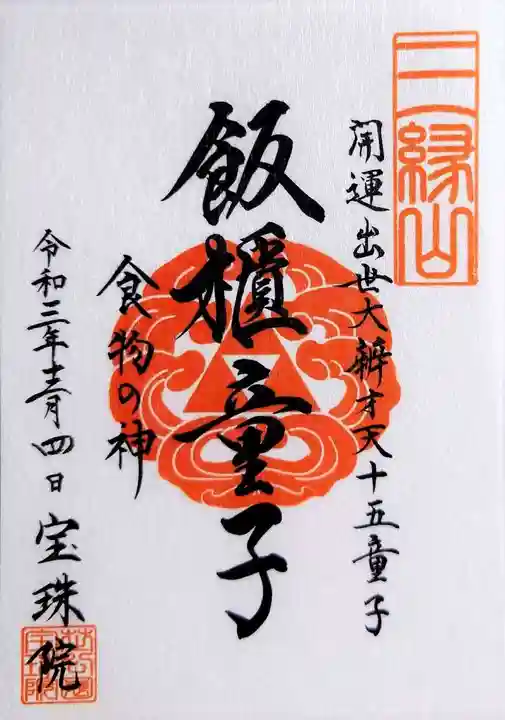 三縁山
開運出世大辨才天十五童子
飯櫃童子
食物の神
令和三年十二月四日
宝珠院